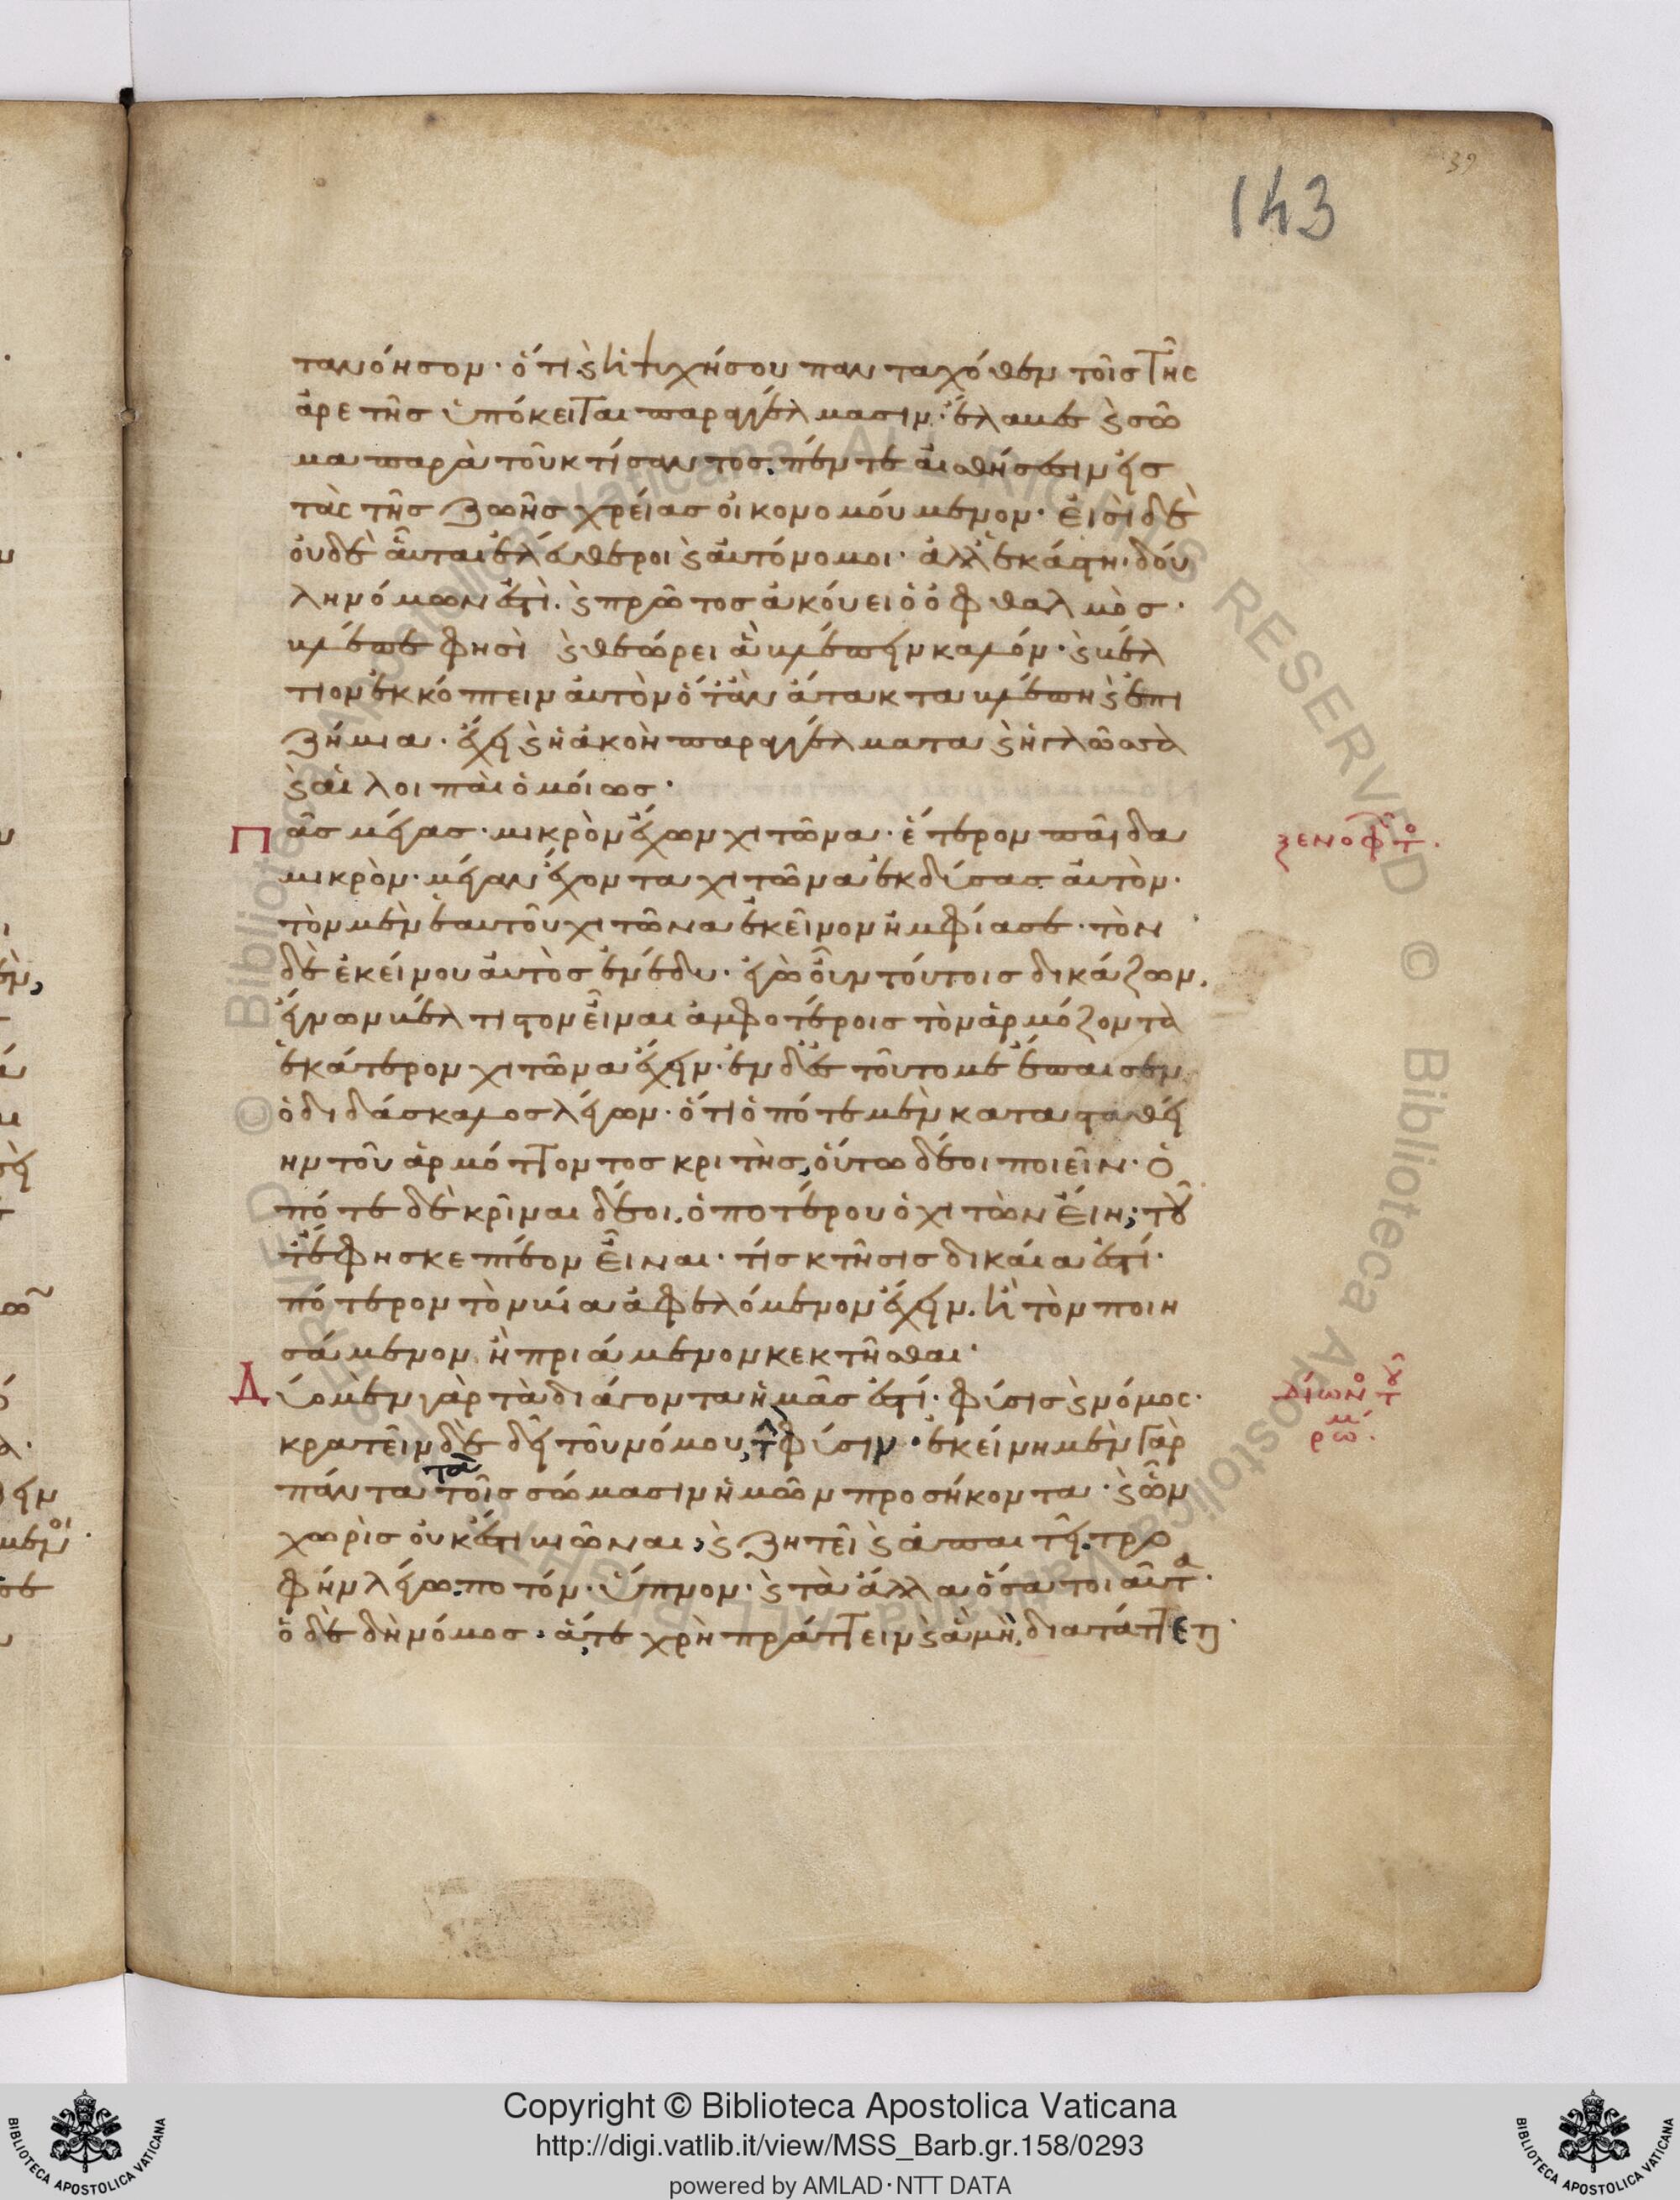 39
143
τανόησον· ὅτι καὶ ἡ ψυχή σου πανταχόθεν τοῖς τῆς
ἀρετῆς ὑπόκειται παραγγέλμασιν· ἔλαβε καὶ σῶ
μα παρὰ τοῦ κτίσαντος, πέντε αἰσθήσεσιν εἰς
τὰς τῆς ζωῆς χρείας οἰκονομούμενον· εἰσὶ δὲ
οὐδὲ αὗται ἐλεύθεροι καὶ αὐτόνομοι· ἀλλ' ἑκάστη δού
λη νόμων ἐστὶ. καὶ πρῶτος ἀκούει ὁ ὀφθαλμὸς·
βλέπε φησὶ καὶ θεώρει ἃ βλέπειν καλόν· καὶ βέλ
τιον ἐκκόπτειν αὐτὸν ὅταν ἄτακτα βλέπη καὶ ἐπι
ζήμια· ἔχει καὶ ἡ ἀκοὴ παραγγέλματα καὶ ἡ γλῶσσα
καὶ αἱ λοιπαὶ ὁμοίως·
Παῖς μέγας· μικρὸν ἔχων χιτῶνα· ἕτερον παῖδα
μικρὸν· μέγαν ἔχοντα χιτῶνα ἐκδύσας αὐτὸν·
τὸν μὲν ἑαυτοῦ χιτῶνα ἐκεῖνον ἠμφίασε· τὸν
δὲ ἐκείνου αὐτὸς ἐνέδυ· ἐγὼ οὖν τούτοις δικάζων,
ἔγνων βέλτιστον εἶναι ἀμφοτέροις τὸν ἁρμόζοντα
ἑκάτερον χιτῶνα ἔχειν· ἐν δὲ τούτω με ἔπαισεν
ὁ διδάσκαλος λέγων· ὅτι ὁπότε μὲν κατασταθεί
ην τοῦ ἁρμόττοντος κριτὴς, οὕτω δέοι ποιεῖν· ὁ
πότε δὲ κρῖναι δέοι, ὁποτέρου ὁ χιτὼν εἴη; τοῦ
τ' ἔφη σκεπτέον εἶναι· τίς κτῆσις δικαία ἐστί·
πότερον τὸν βία ἀφελόμενον ἔχειν, ἢ τὸν ποιη
σάμενον ἢ πριάμενον κεκτῆσθαι·
Δύο μὲν γὰρ τὰ διάγοντα ἡμᾶς ἐστί· φύσις καὶ νόμος·
κρατεῖν δὲ δεῖ τοῦ νόμου, τὴν φύσιν· ἐκείνη μὲν γὰρ
πάντα τὰ τοῖς σώμασιν ἡμῶν προσήκοντα· καὶ ὧν
χωρὶς οὐκ ἔστι βιῶναι, καὶ ζητεῖ καὶ ἀπαιτεῖ, τρο
φὴν λέγω, ποτόν· ὕπνον· καὶ τὰ ἄλλα ὅσα τοιαῦτα·
ὁ δὲ δὴ νόμος· ἅτε χρὴ πράττειν καὶ ἃ μὴ, διατάττεται·
ξενοφῶντος.
Δίωνος τοῦ
ρωμ.
Copyright © Biblioteca Apostolica Vaticana
http://digi.vatlib.it/view/MSS_Barb.gr.158/0293
powered by AMLAD·NTT DATA